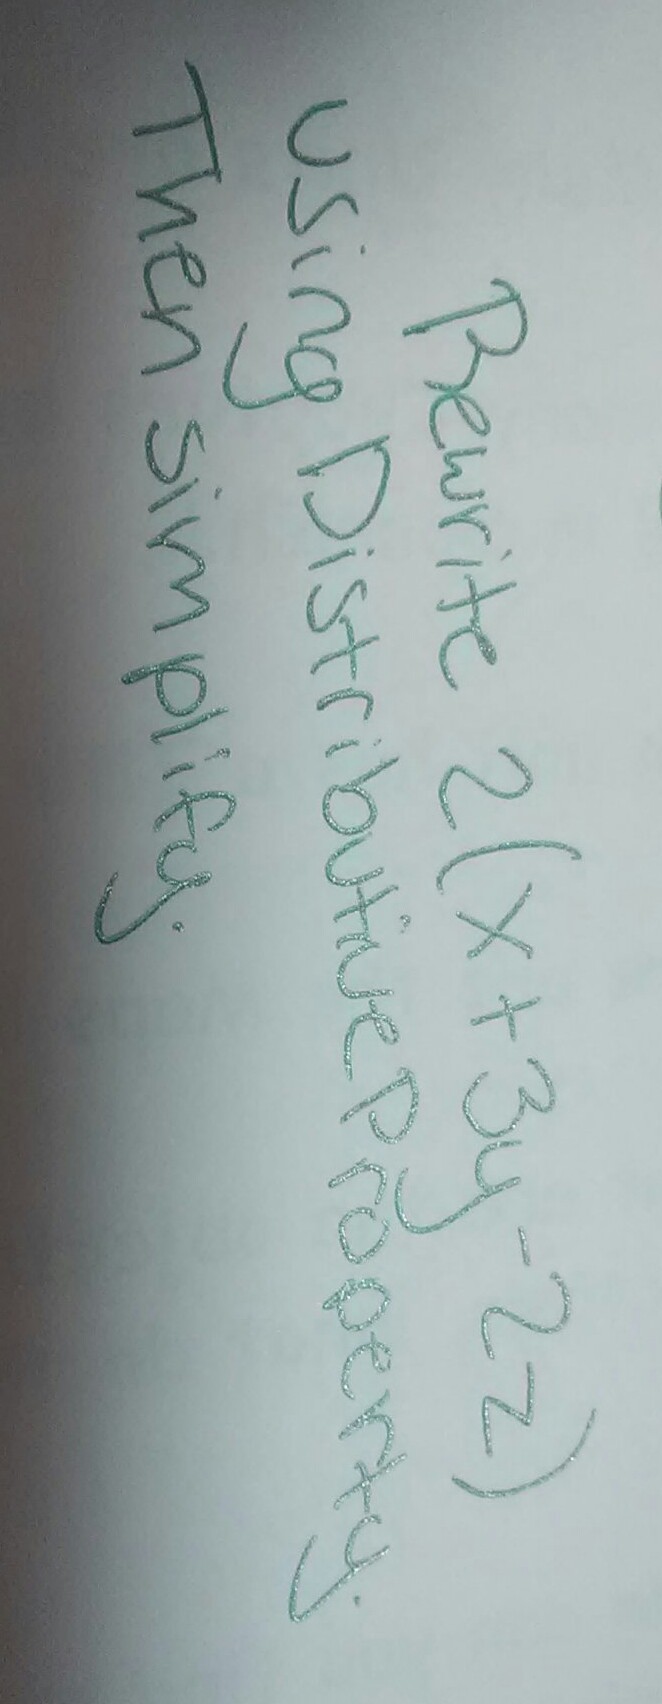 Rewrite 2(x+3y-2z)
Using Distributive Property.
Then simplify.